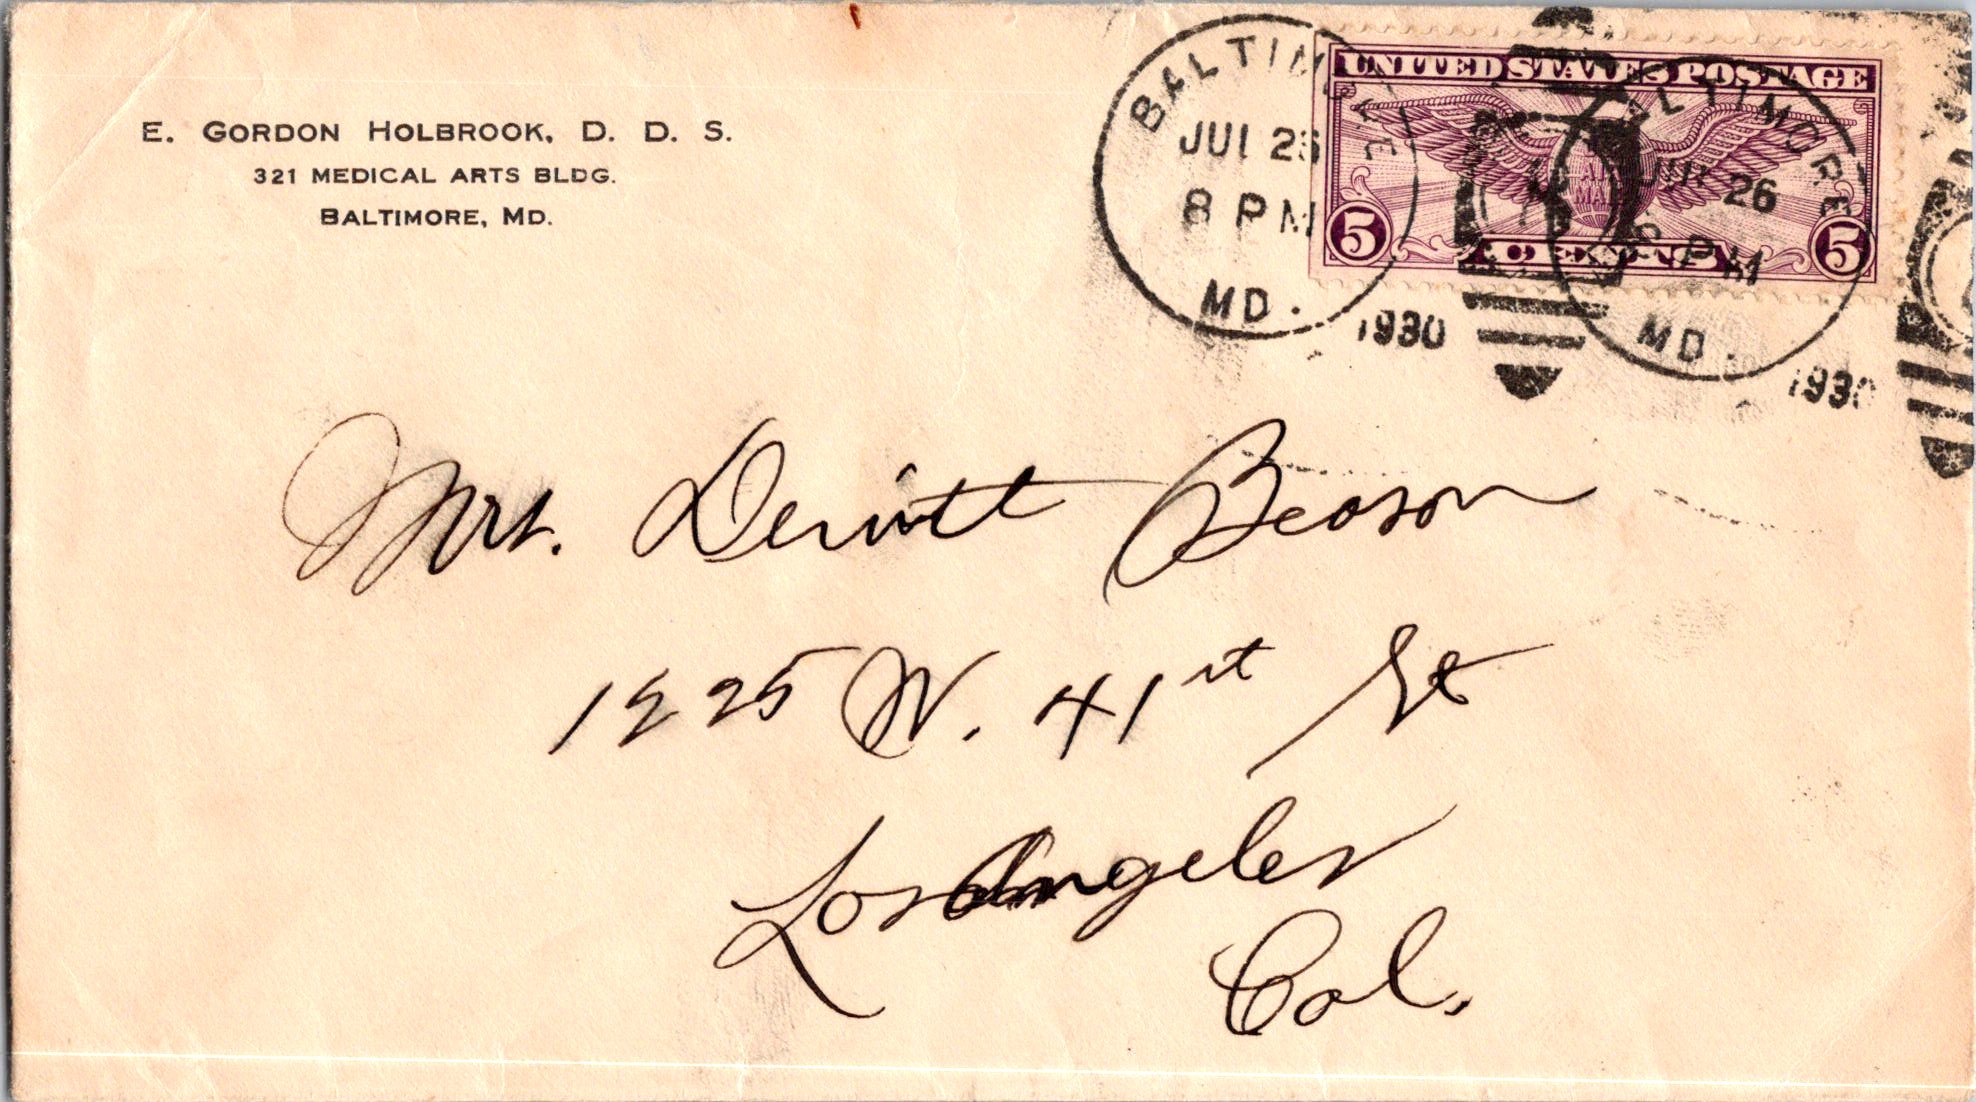 E. GORDON HOLBROOK, D. D. S.
321 MEDICAL ARTS BLDG.
BALTIMORE, MD.
BALTIMORE
JUL 26
8 PM
MD.
1930
UNITED STATES POSTAGE
AIR
MAIL
5 CENTS 5
BALTIMORE
JUL 26
8 PM
MD.
1930
Mrs. Dewitt Beason
1225 W. 41st St
Los Angeles
Cal.